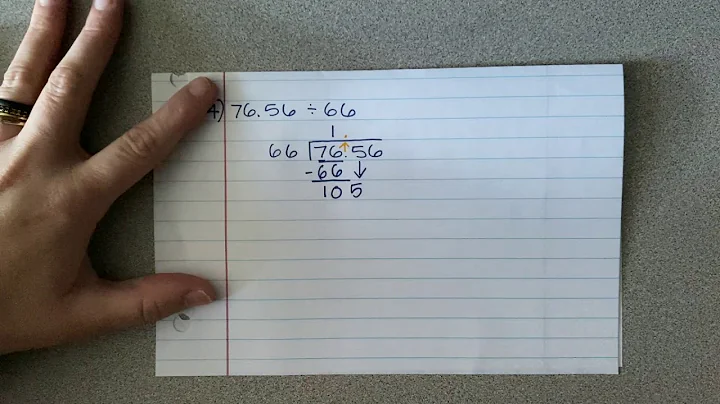 4) 76.56 ÷ 66
1.
66 76.56
-66↓
105